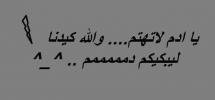 يا ادم لاتهتم.... والله كيدنا
ليبكيكم دمممممم .. ^_^